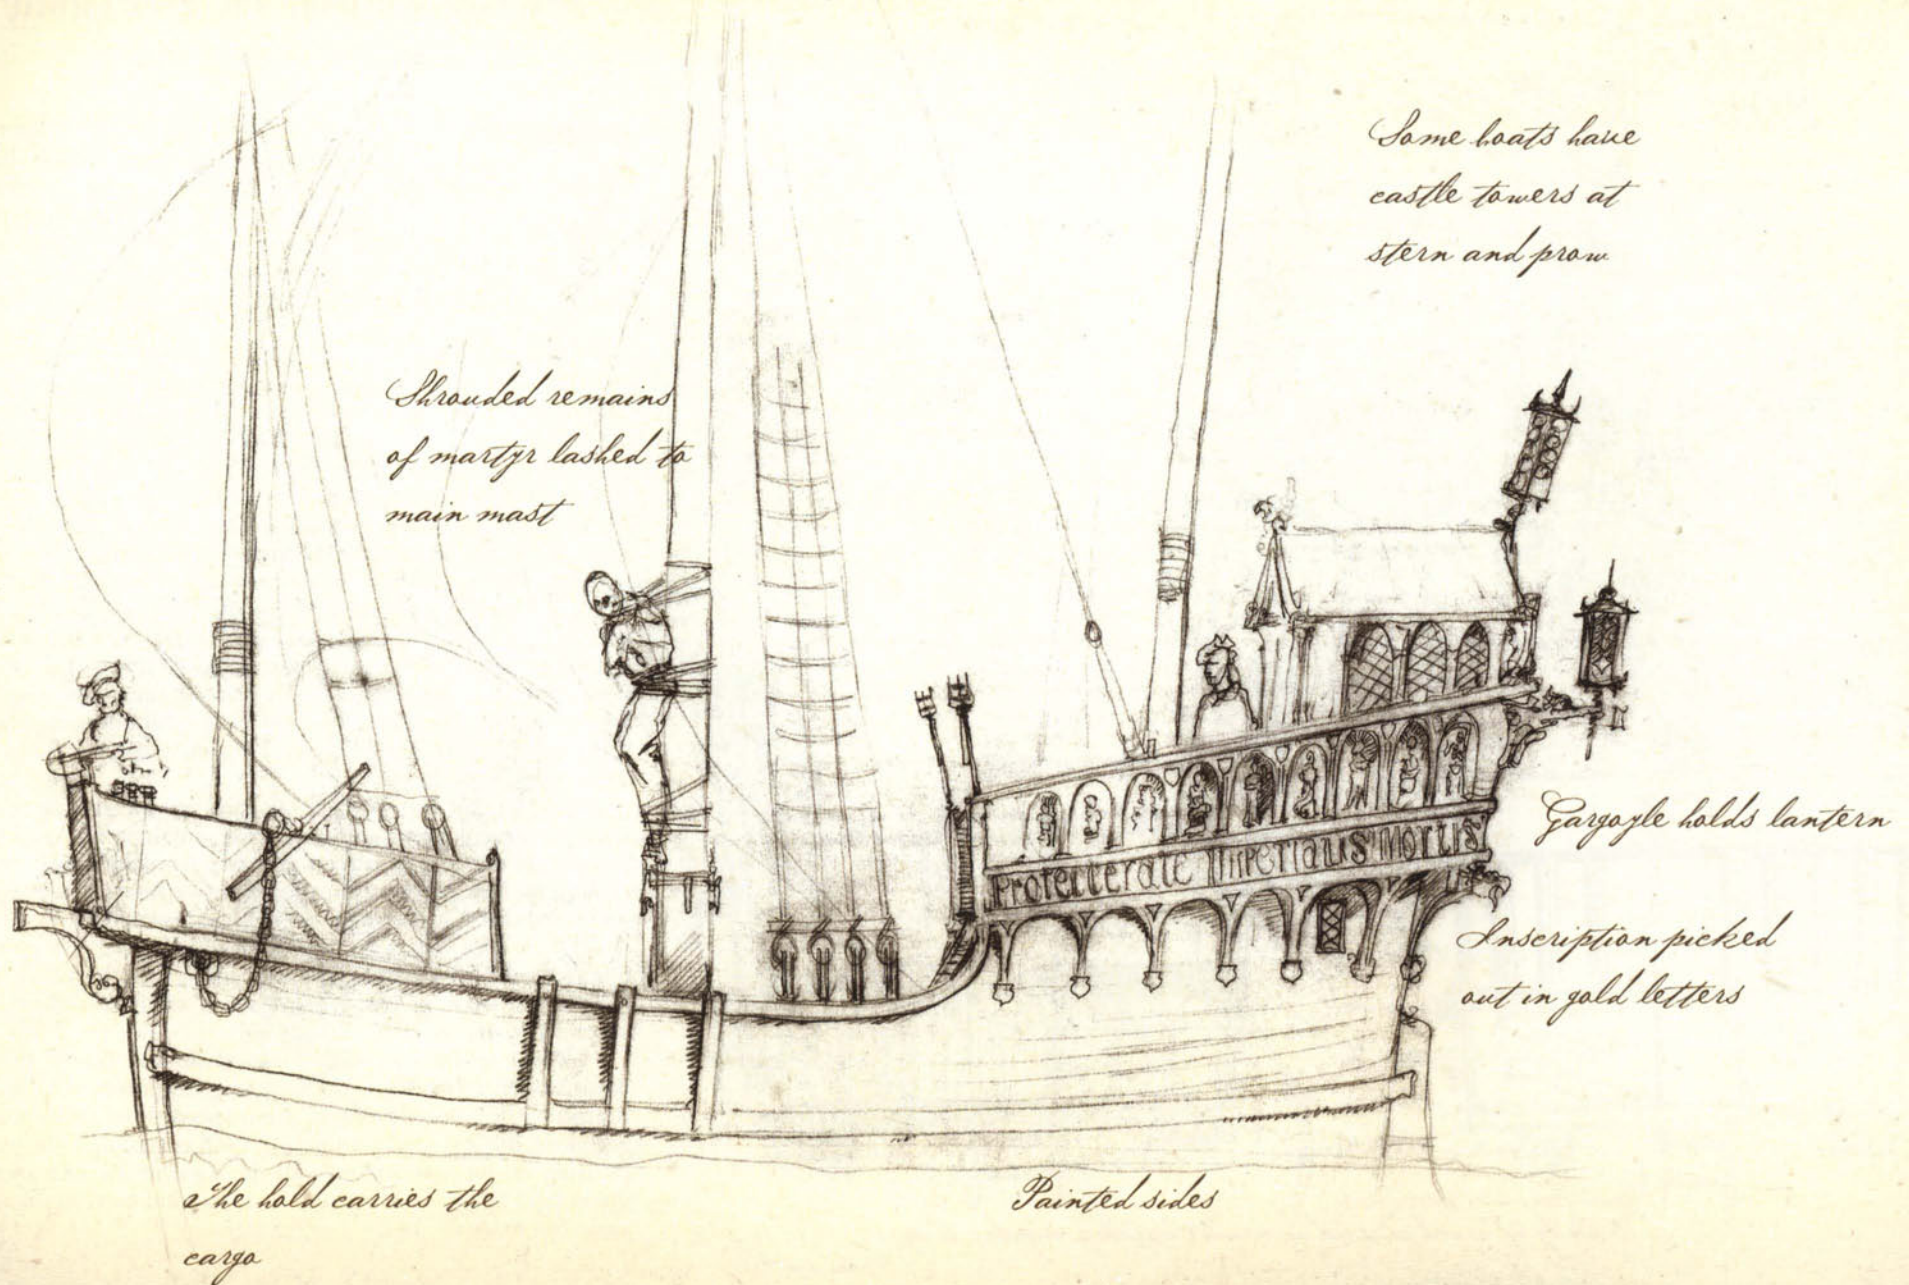 Some boats have
castle towers at
stern and prow
Shrouded remains
of martyr lashed to
main mast
Gargoyle holds lantern
Inscription picked
out in gold letters
The hold carries the
cargo
Painted sides